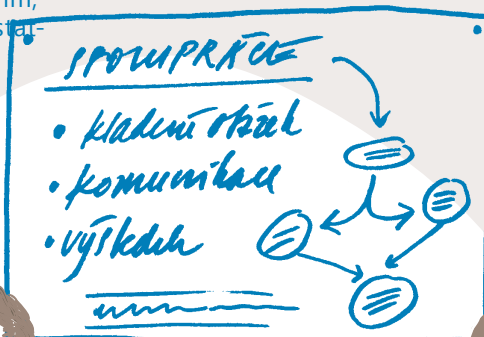 SPOLUPRÁCE
• kladení otázek
• komunikace
• výsledek